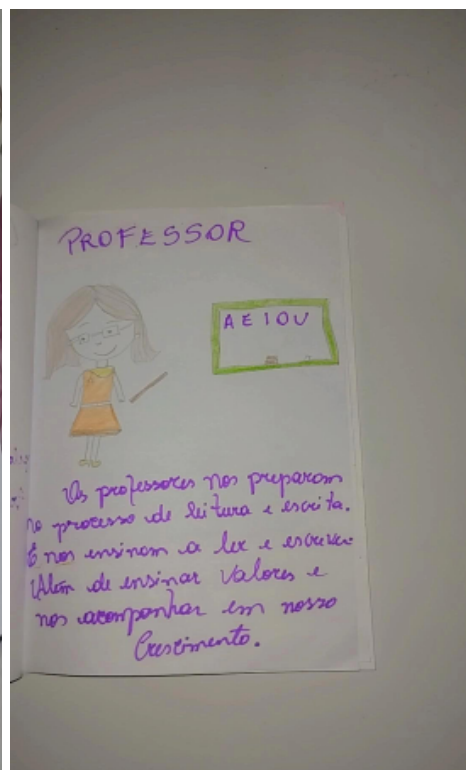 PROFESSOR
A E I O U
Os professores nos preparam
no processo de leitura e escrita.
E nos ensinam a ler e escrever
Além de ensinar Valores e
nos acompanhar em nosso
Crescimento.